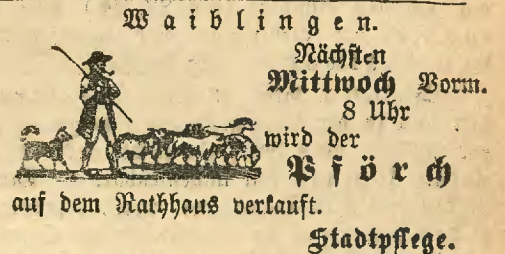 Waiblingen.
Nächsten
Mittwoch Vorm.
8 Uhr
wird der
Pförch
auf dem Rathhaus verkauft.
Stadtpflege.